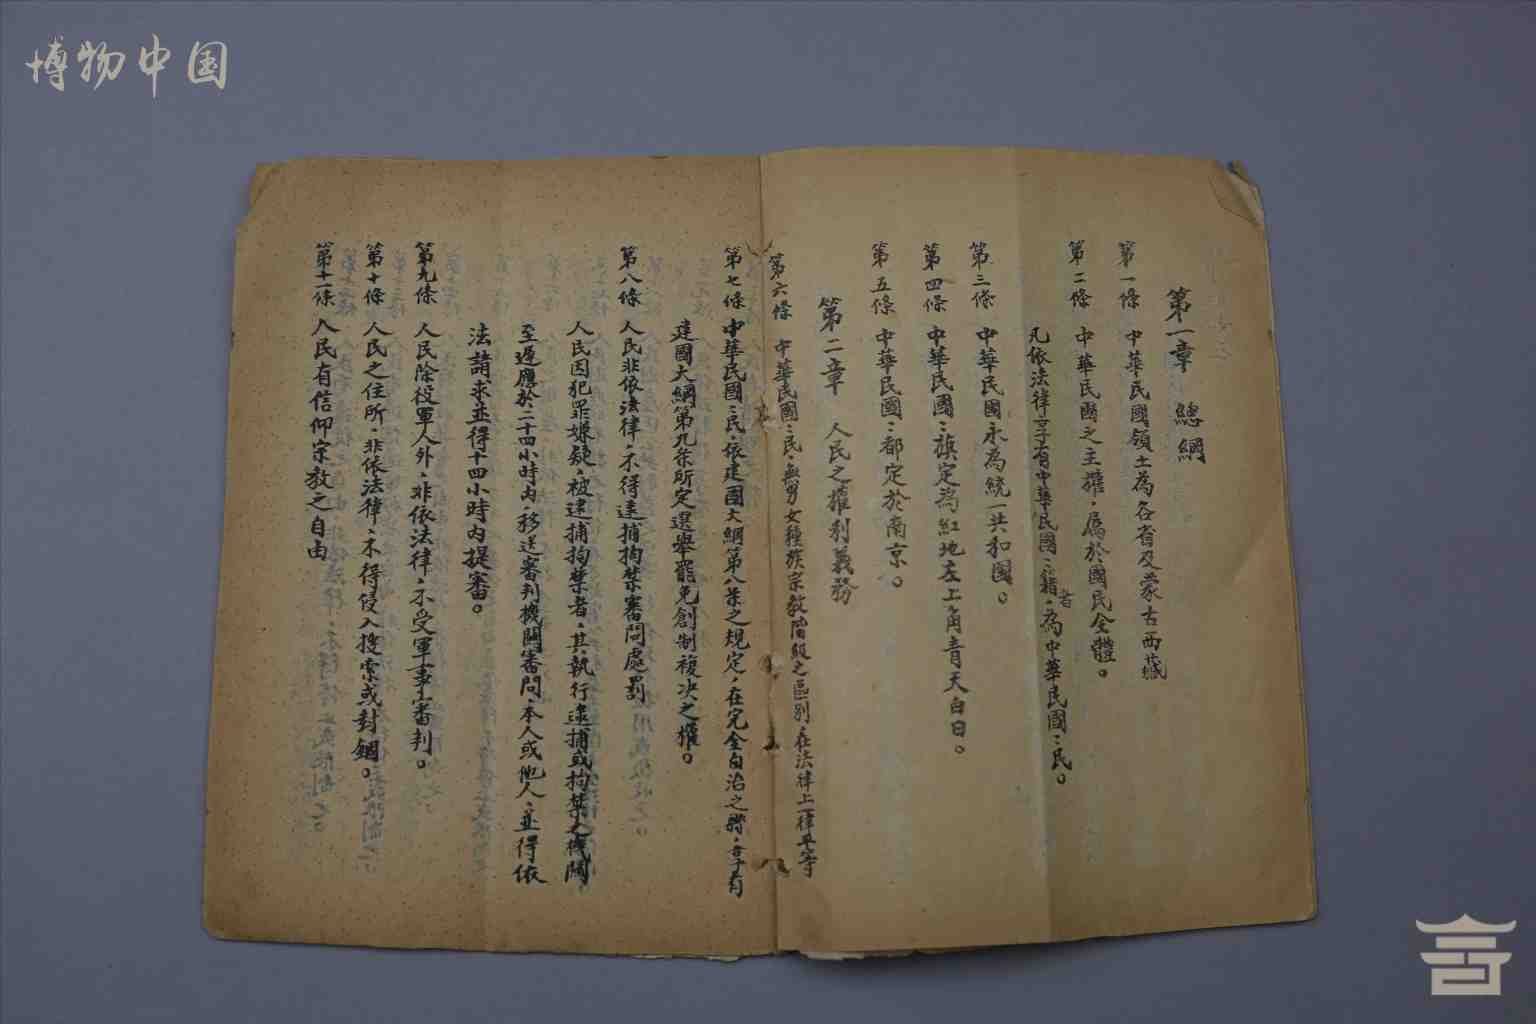 博物中国
第一章 總綱
第一條 中華民國領土為各省及蒙古西藏
第二條 中華民國之主權，屬於國民全體。
凡依法律享有中華民國〻籍者，為中華民國〻民。
第三條 中華民國永為統一共和國。
第四條 中華民國〻旗定為紅地左上角青天白日。
第五條 中華民國〻都定於南京。
第二章 人民之權利義務
第六條 中華民國〻民，無男女種族宗教階級之區別，在法律上一律平等
第七條 中華民國〻民，依建國大綱第八条之規定，在完全自治之縣，享有
建國大綱第九条所定選舉罷免創制複决之權。
第八條 人民非依法律，不得逮捕拘禁審問處罰
人民因犯罪嫌疑，被逮捕拘禁者，其執行逮捕或拘禁之機関
至遲應於二十四小時內，移送審判機關審問，本人或他人，並得依
法請求並得十四小時内提審。
第九條 人民除役軍人外，非依法律，不受軍事審判。
第十條 人民之住所，非依法律，不得侵入搜索或封錮。
第十一條 人民有信仰宗教之自由